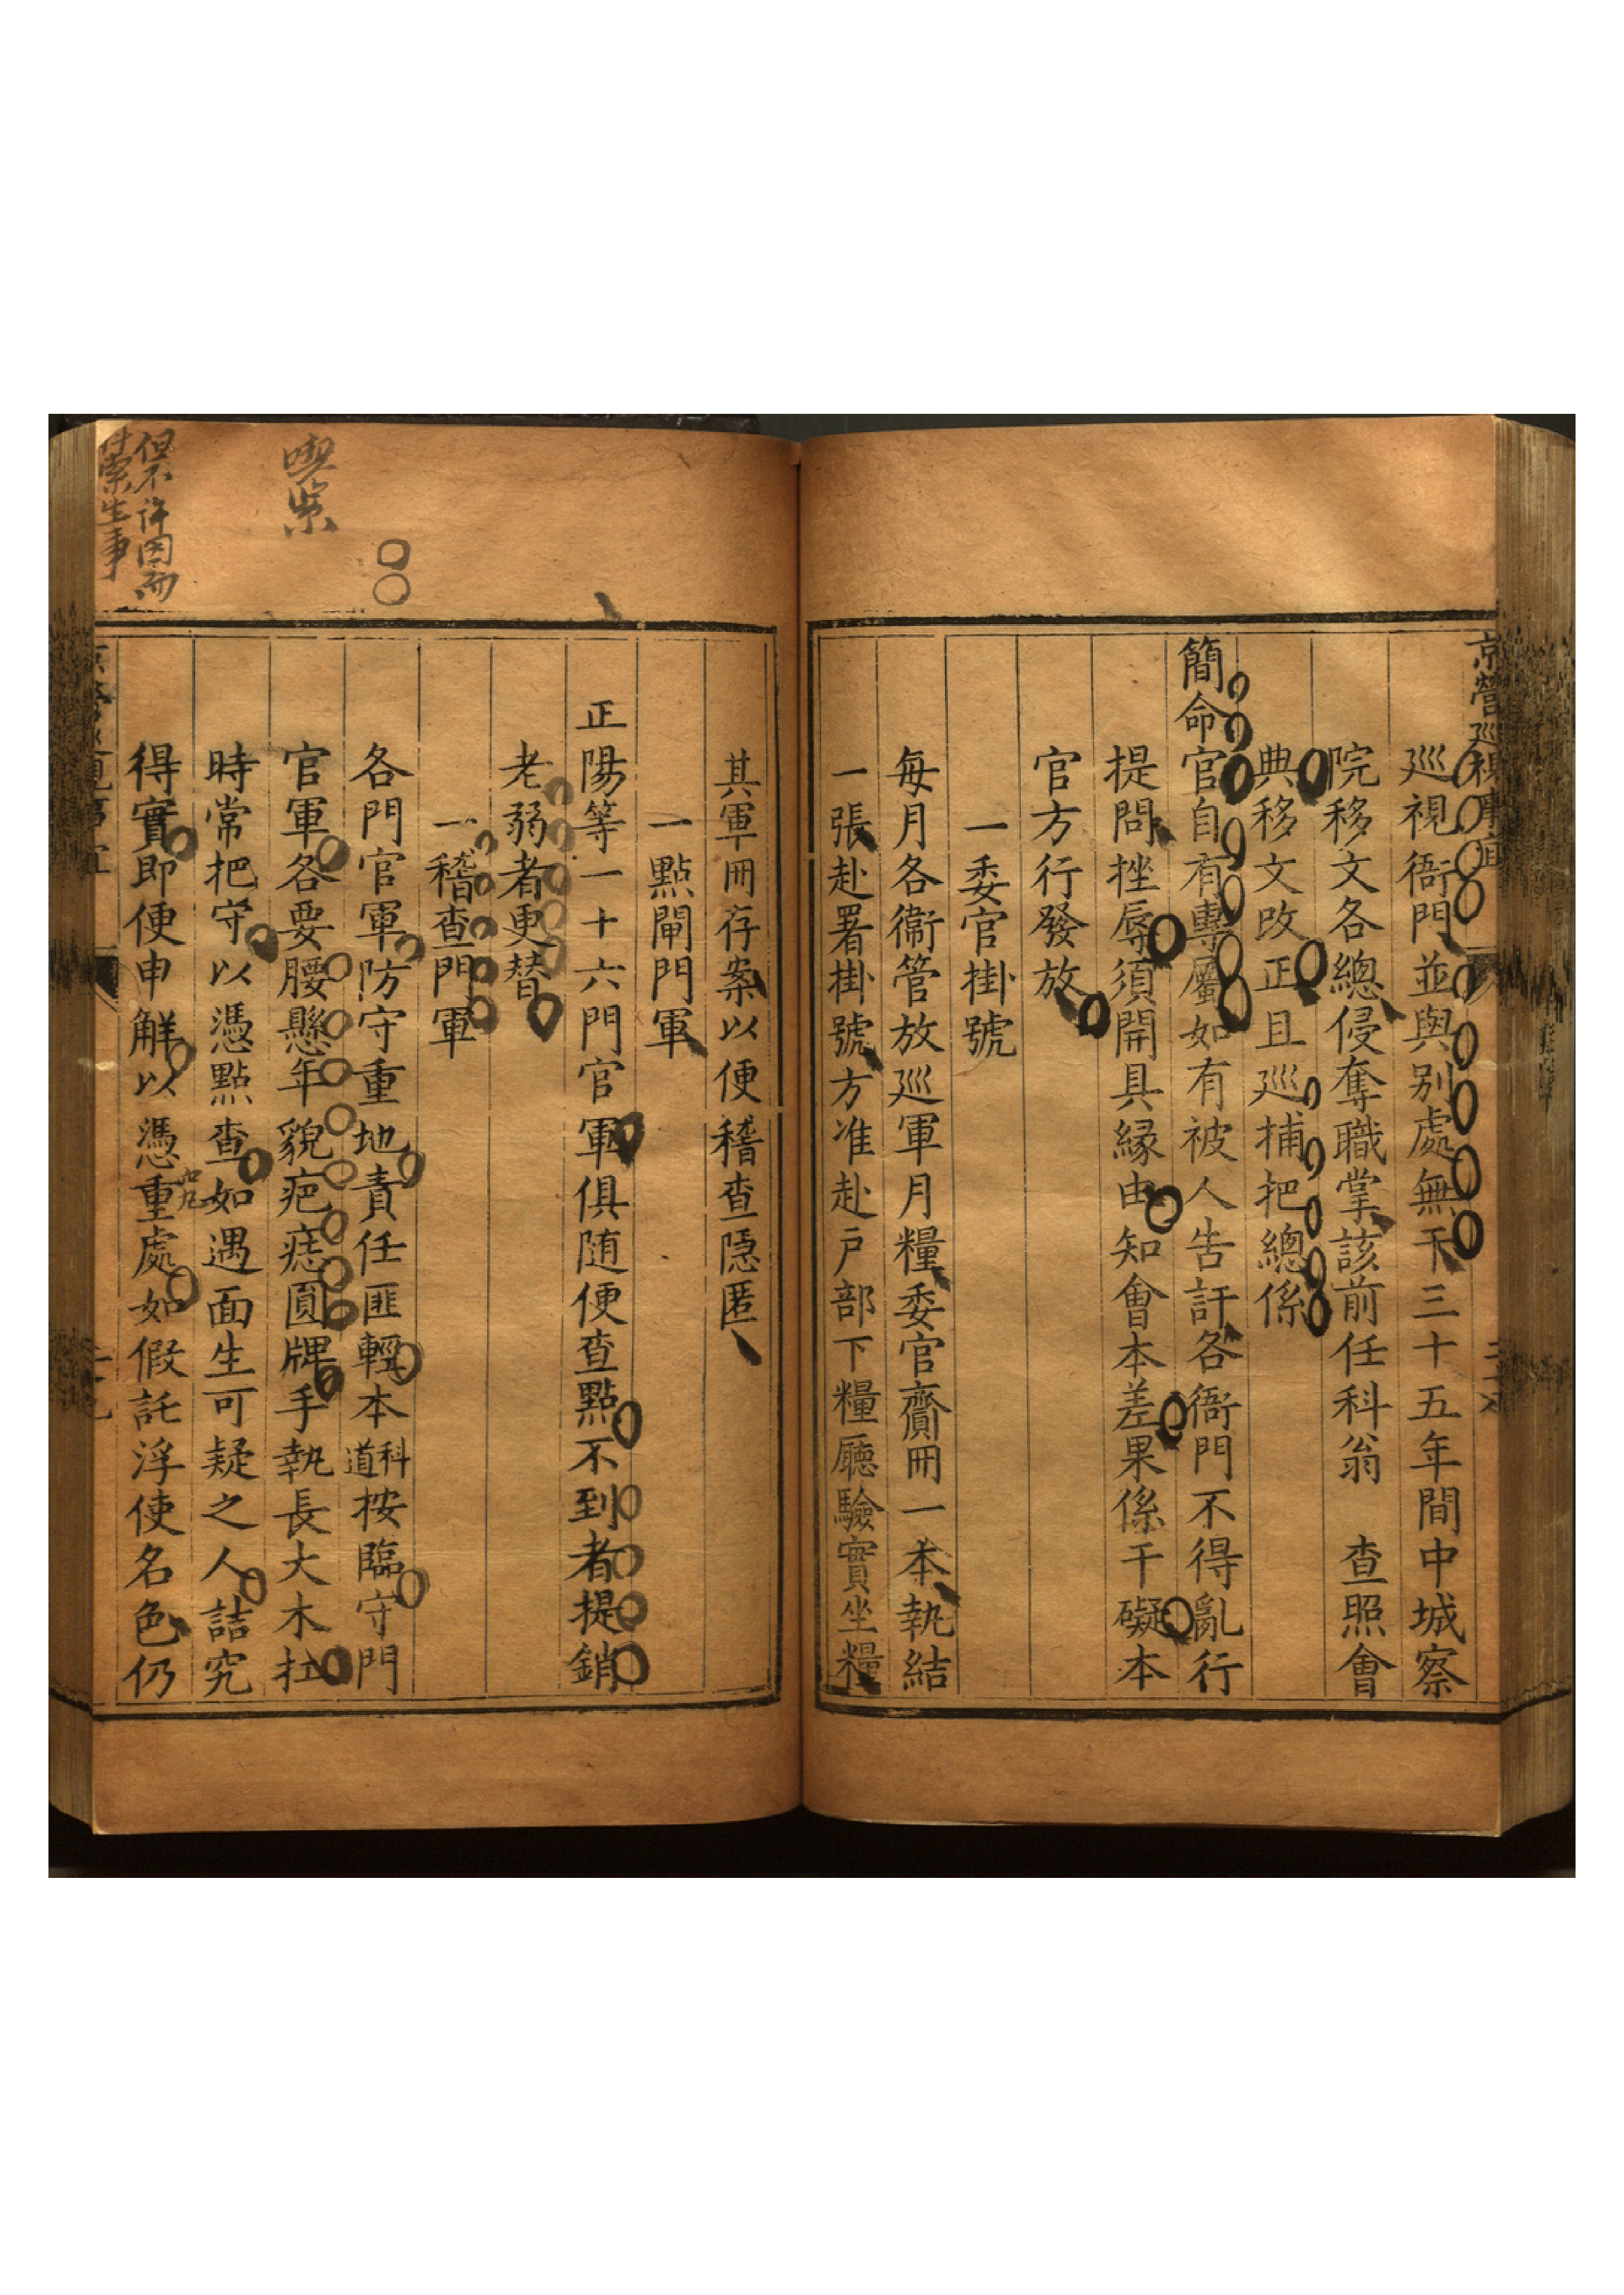 京營巡視事宜
巡視衙門並與別處無干三十五年間中城察
院移文各總侵奪職掌該前任科翁　查照會
典移文改正且巡捕把總係
簡命官自有專屬如有被人告訐各衙門不得亂行
提問挫辱須開具緣由知會本差果係干礙本
官方行發放
一委官掛號
每月各衞管放巡軍月糧委官齎冊一本執結
一張赴署掛號方准赴戶部下糧廳驗實坐糧
其軍冊存案以便稽查隱匿
一點閘門軍
正陽等一十六門官軍俱随便查點不到者提銷
老弱者更替
一稽查門軍
各門官軍防守重地責任匪輕本科道按臨守門
官軍各要腰懸年貌疤痣圓牌手執長大木扛
時常把守以憑點查如遇面生可疑之人詰究
得實即便申解以憑重處如假託浮使名色仍
喫紧
但不許因而
生事